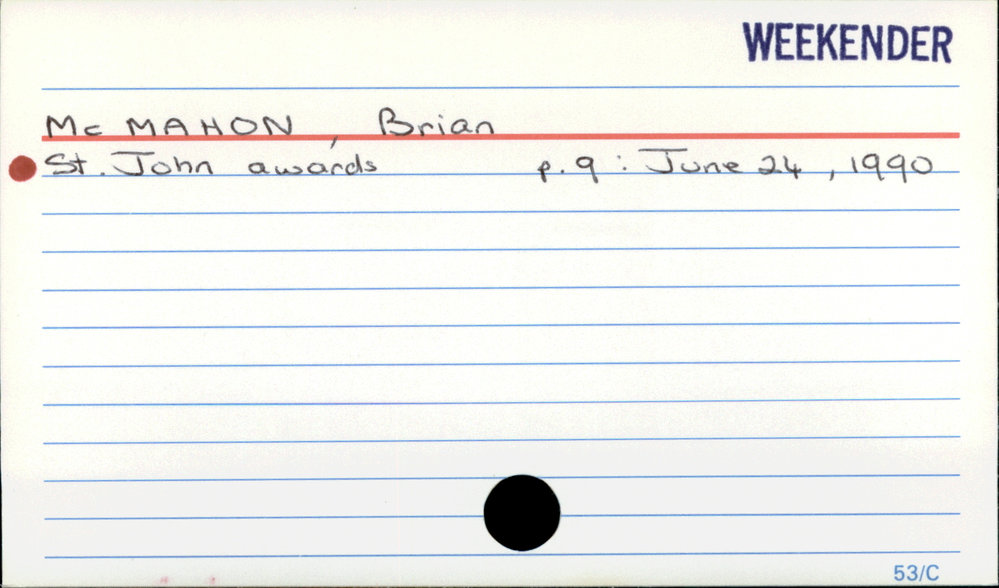 WEEKENDER
Mc MAHON, Brian
St. John awards p.9 : June 24, 1990
53/C